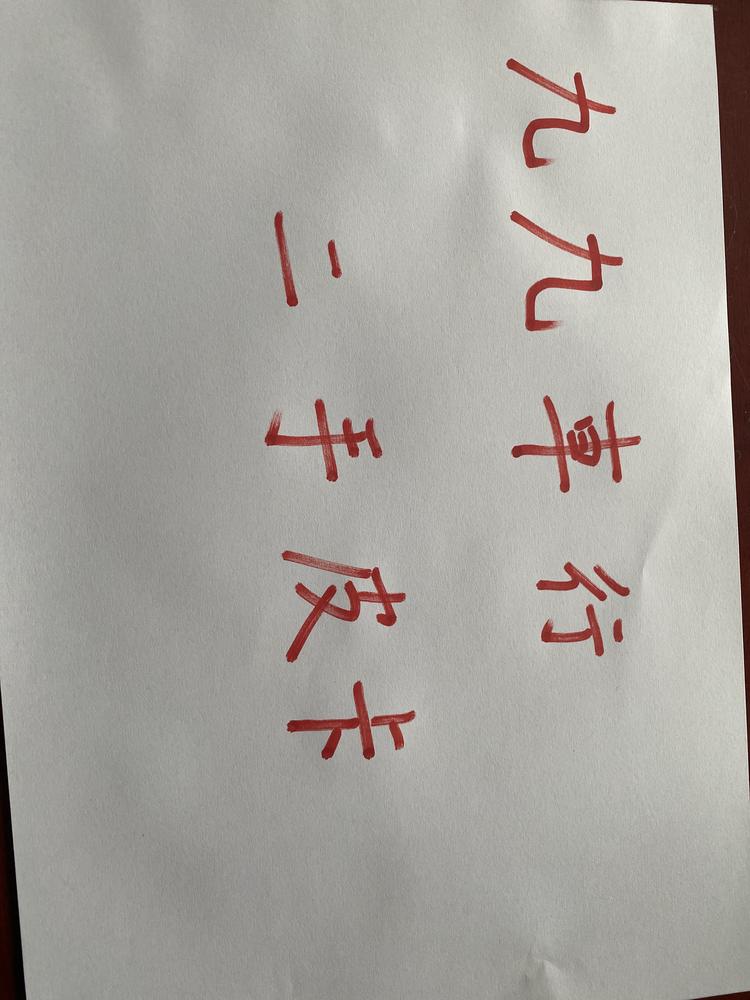 九九車行
二手皮卡